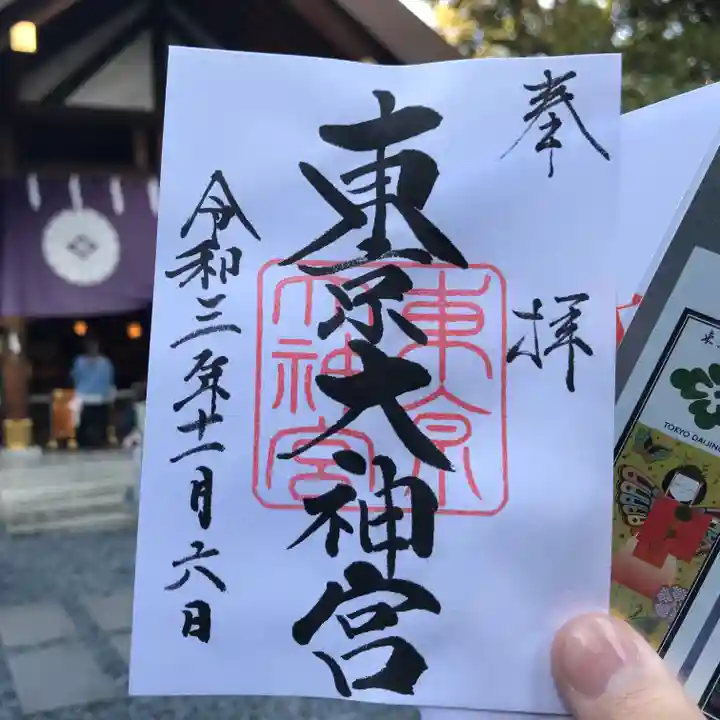 奉拝
東京大神宮
東京大神宮
令和三年十一月六日
TOKYO DAIJING